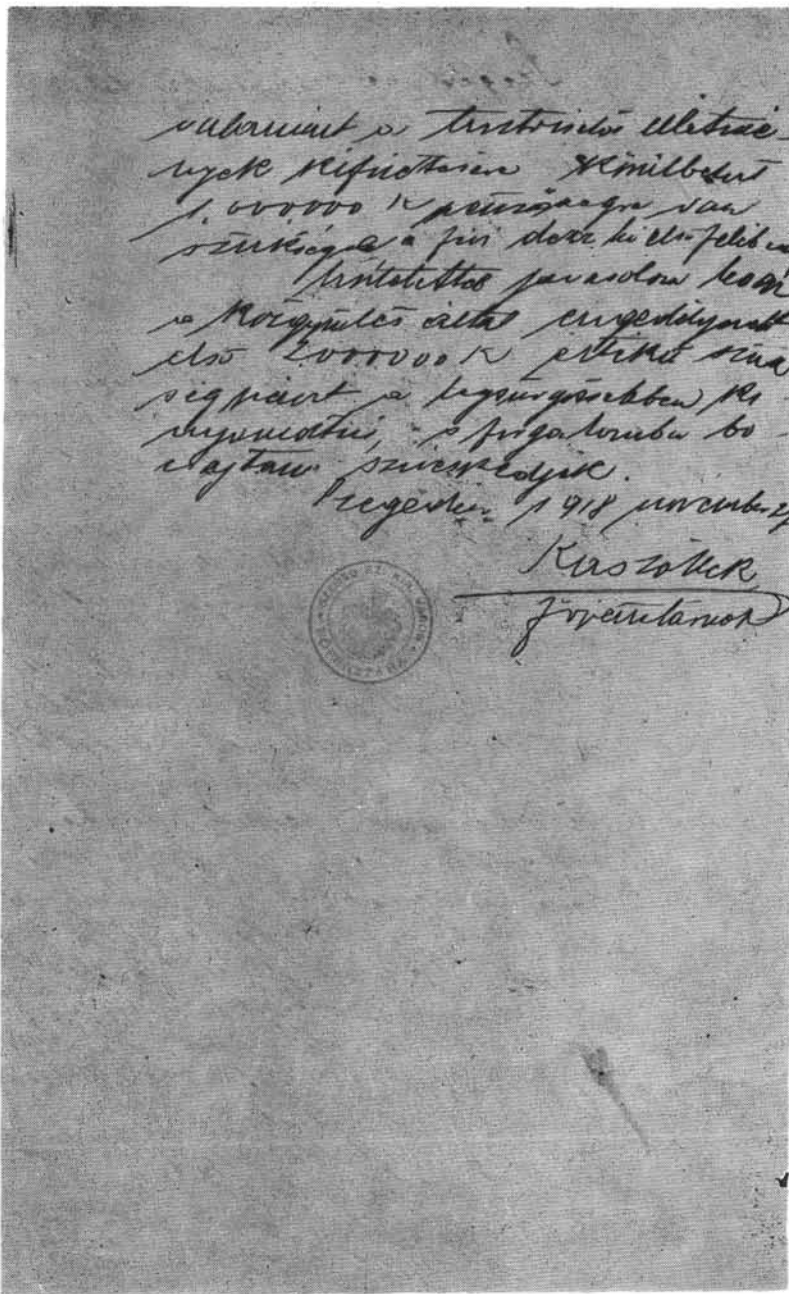 valamint a tisztviselői illetmé-
nyek kifizetésére körülbelül
1.000000 K pénzösszegre van
szüksége a jövő hó első felében
Tisztelettel javaslom hogy
a közgyülés által engedélyezett
első 2000000 K értékü szük
ségpénzt a legsürgősebben ki
nyomatni, s forgalomba bo
csájtani sziveskedjék.
Szegeden 1918 november
főpénztárnok